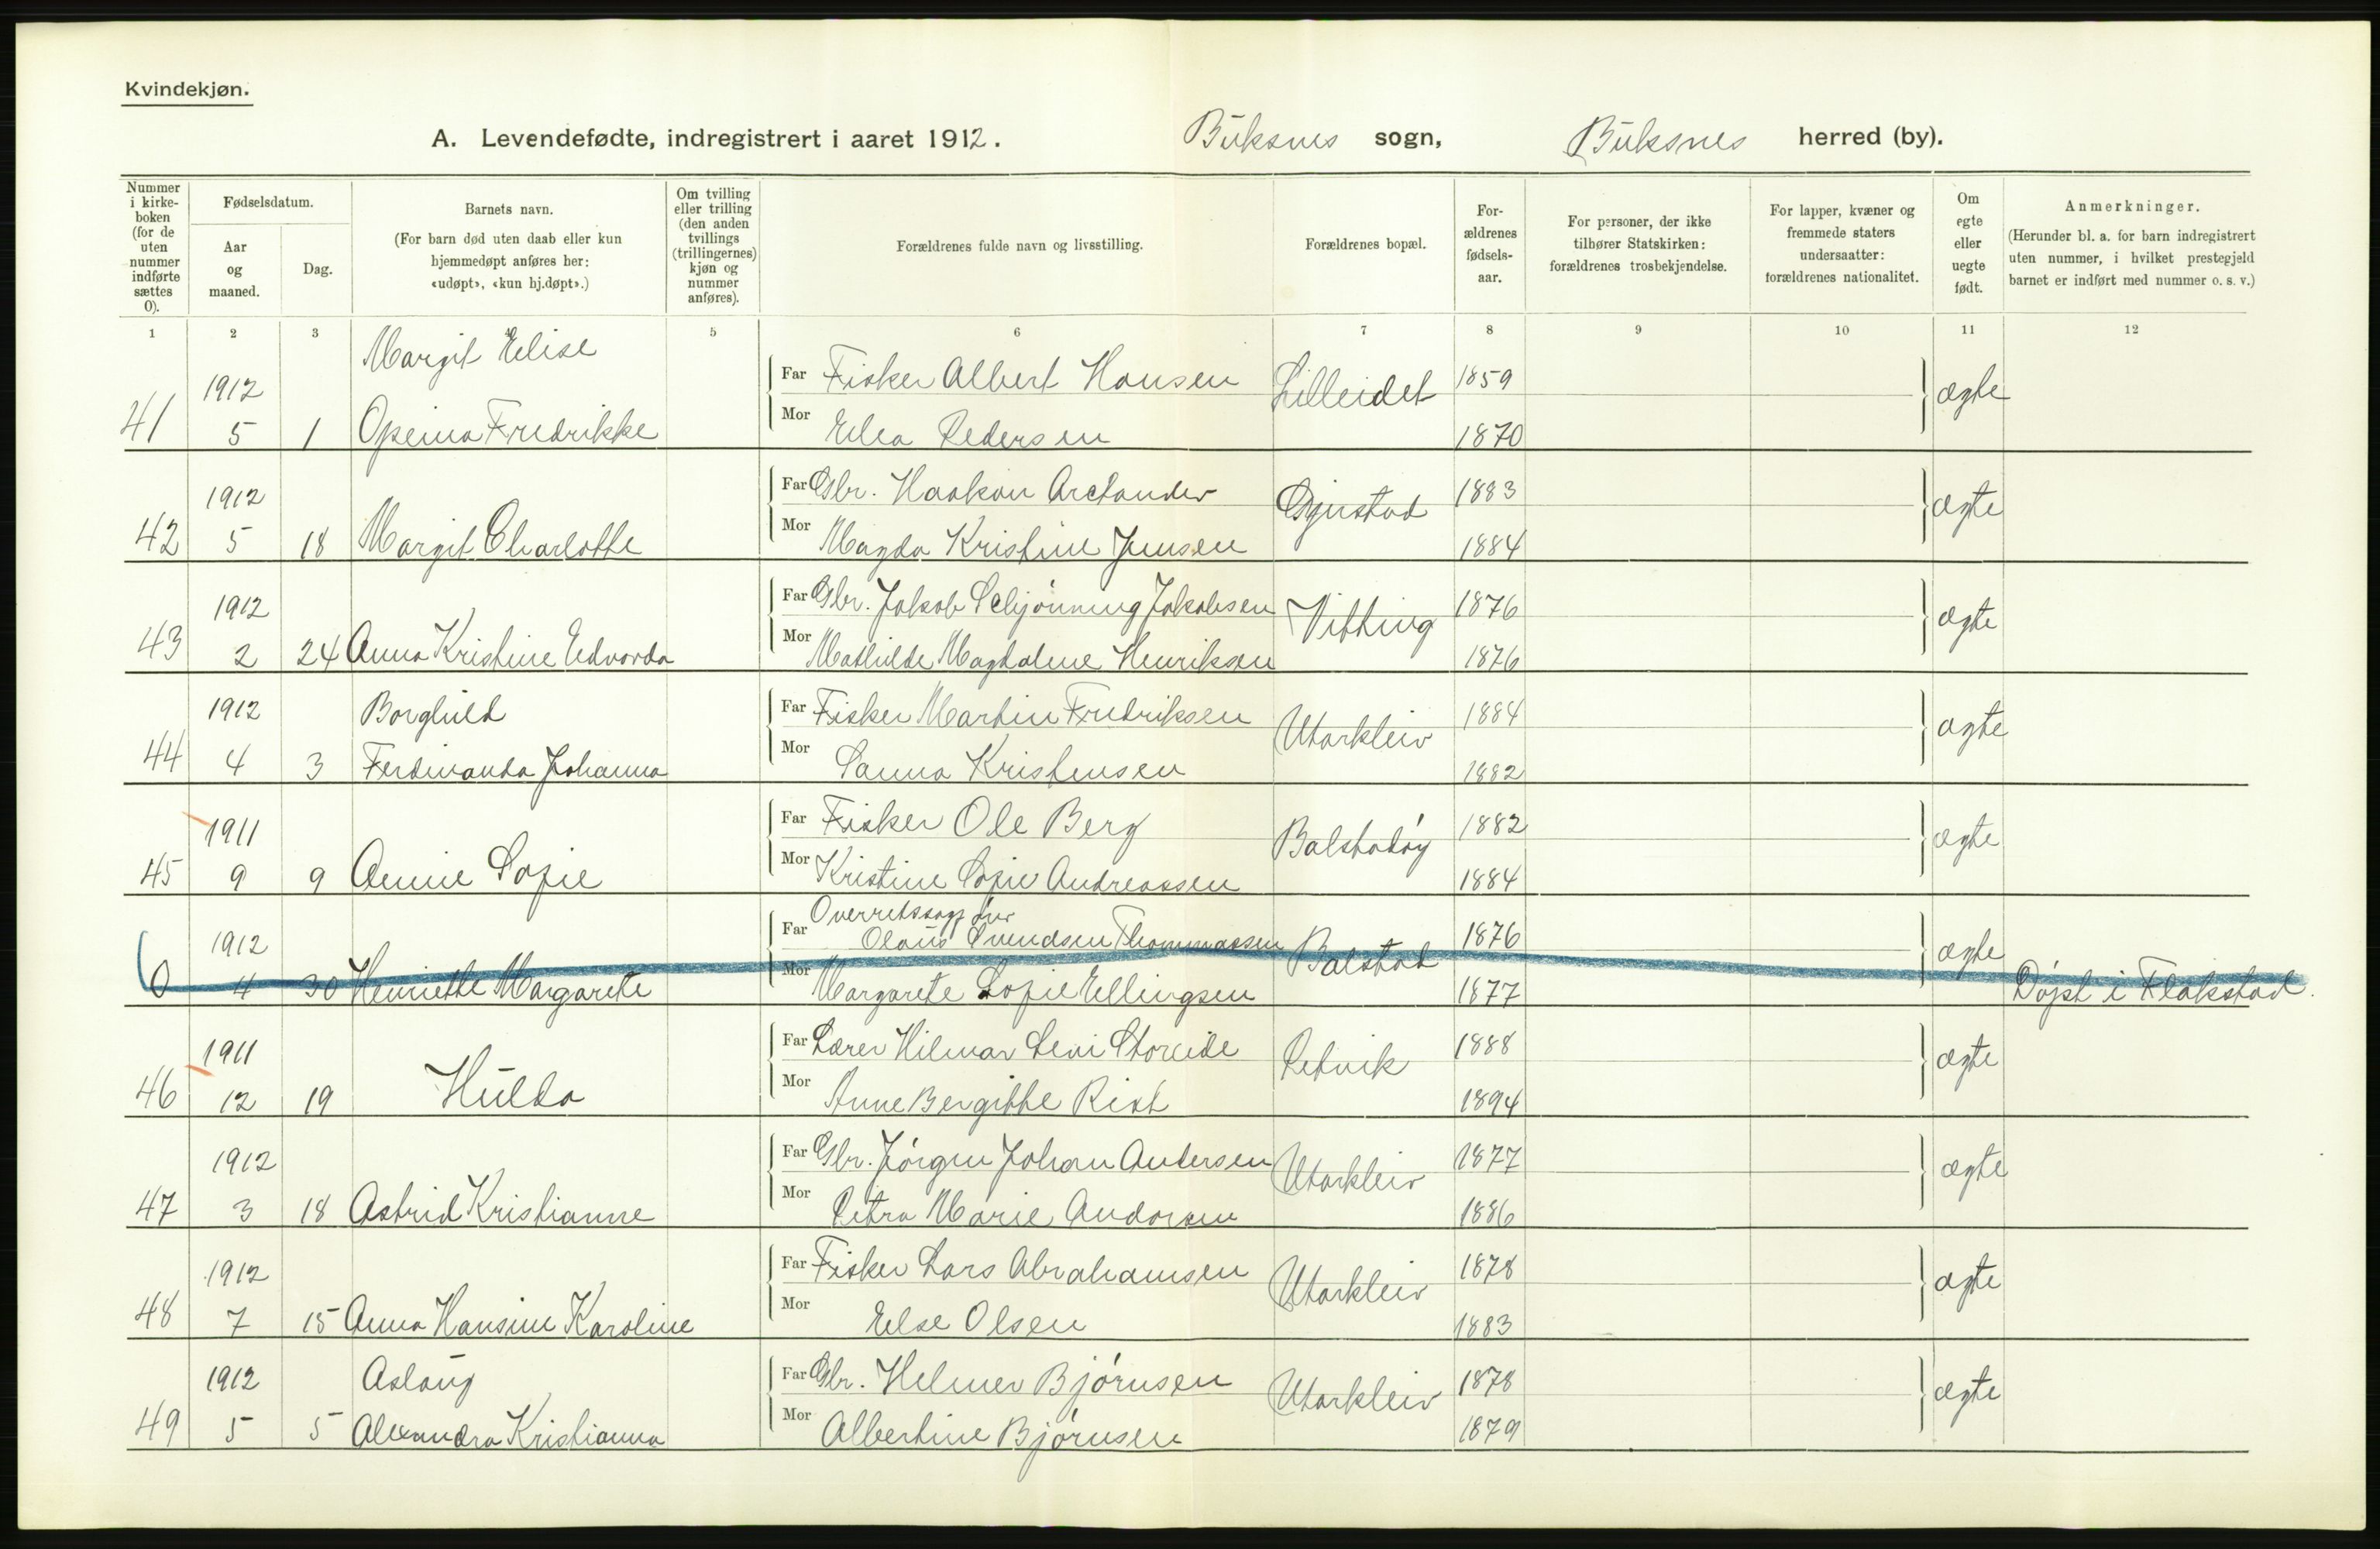 Kvindekjøn.
A. Levendefødte, indregistrert i aaret 1912. Buksnes sogn, Buksnes herred (by).
Nummer i kirke-boken (for de uten nummer indførte sættes 0).
Fødselsdatum.
Aar og maaned.
Dag.
Barnets navn.
(For barn død uten daab eller kun hjemmedøpt anføres her: «udøpt», «kun hj.døpt».)
Om tvilling eller trilling (den anden tvillings (trillingernes) kjøn og nummer anføres).
Forældrenes fulde navn og livsstilling.
Forældrenes bopæl.
For-ældrenes fødsels-aar.
For personer, der ikke tilhører Statskirken: forældrenes trosbekjendelse.
For lapper, kvæner og fremmede staters undersaatter: forældrenes nationalitet.
Om egte eller uegte født.
Anmerkninger.
(Herunder bl. a. for barn indregistrert uten nummer, i hvilket prestegjeld barnet er indført med nummer o. s. v.)
1 2 3 4 5 6 7 8 9 10 11 12
Margit Elise
1912 Far Fisker Albert Hansen Lilleidet 1859 ægte
41 5 1 Fredrikke Mor Elea Pedersen 1870
1912 Far Gbr. Haakon Arctander Gjerstad 1883 ægte
42 5 18 Margit Charlotte Mor Magda Kristine Jensen 1884
1912 Far Gbr. Jakob Schjønning Jakobsen Vitting 1876 ægte
43 2 24 Anna Kristine Edvarda Mor Mathilde Magdalene Henriksen 1876
1912 Borghild Far Fisker Martin Fredriksen Utakleiv 1884 ægte
44 4 3 Ferdinanda Johanna Mor Sanna Kristensen 1882
1911 Far Fisker Ole Berg Balstadøy 1882 ægte
45 9 9 Annie Sofie Mor Kristine Sofie Andreassen 1884
Overretssagfører
1912 Far Olaus Svendsen Thommassen Balstad 1876 ægte
0 4 30 Henriette Margarete Mor Margarete Sofie Ellingsen 1877 Døpt i Flakstad.
1911 Far Lærer Hilmar Leni Storeide Petvik 1888 ægte
46 12 19 Hulda Mor Anne Bergitte Rist 1894
1912 Far Gbr. Jørgen Johan Andersen Utakleiv 1877 ægte
47 3 18 Astrid Kristianne Mor Petra Marie Andorsen 1886
1912 Far Fisker Lars Abrahamsen Utakleiv 1878 ægte
48 7 15 Anna Hansine Karoline Mor Else Olsen 1883
1912 Aslaug Far Gbr. Helmer Bjørnsen Utakleiv 1878 ægte
49 5 5 Alexandra Kristianna Mor Albertine Bjørnsen 1879